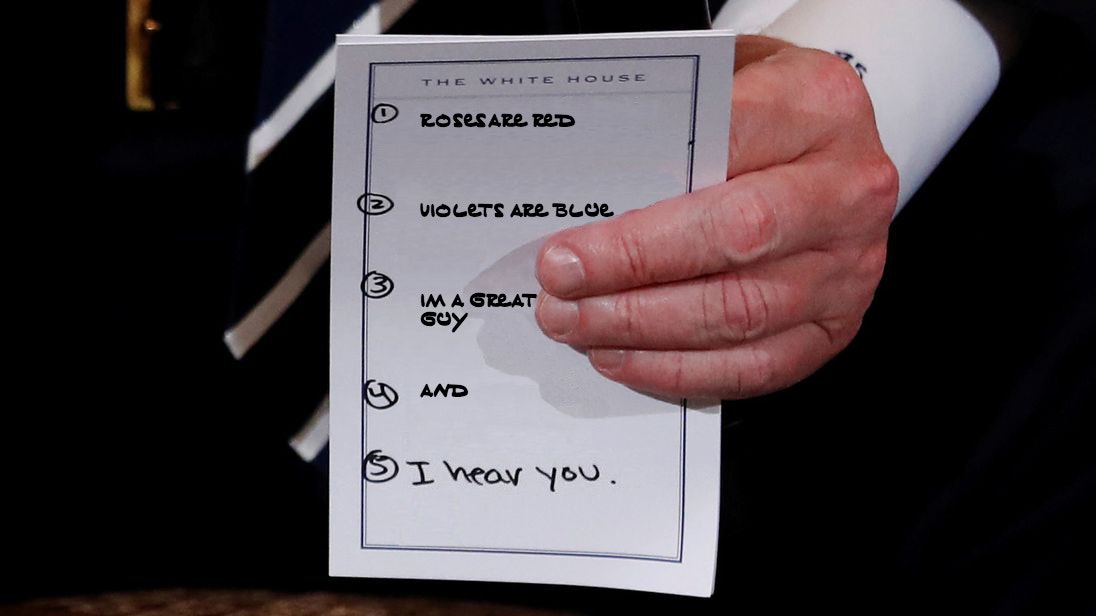 THE WHITE HOUSE
1 ROSES ARE RED
2 VIOLETS ARE BLUE
3 IM A GREAT
GUY
4 AND
5 I hear you.